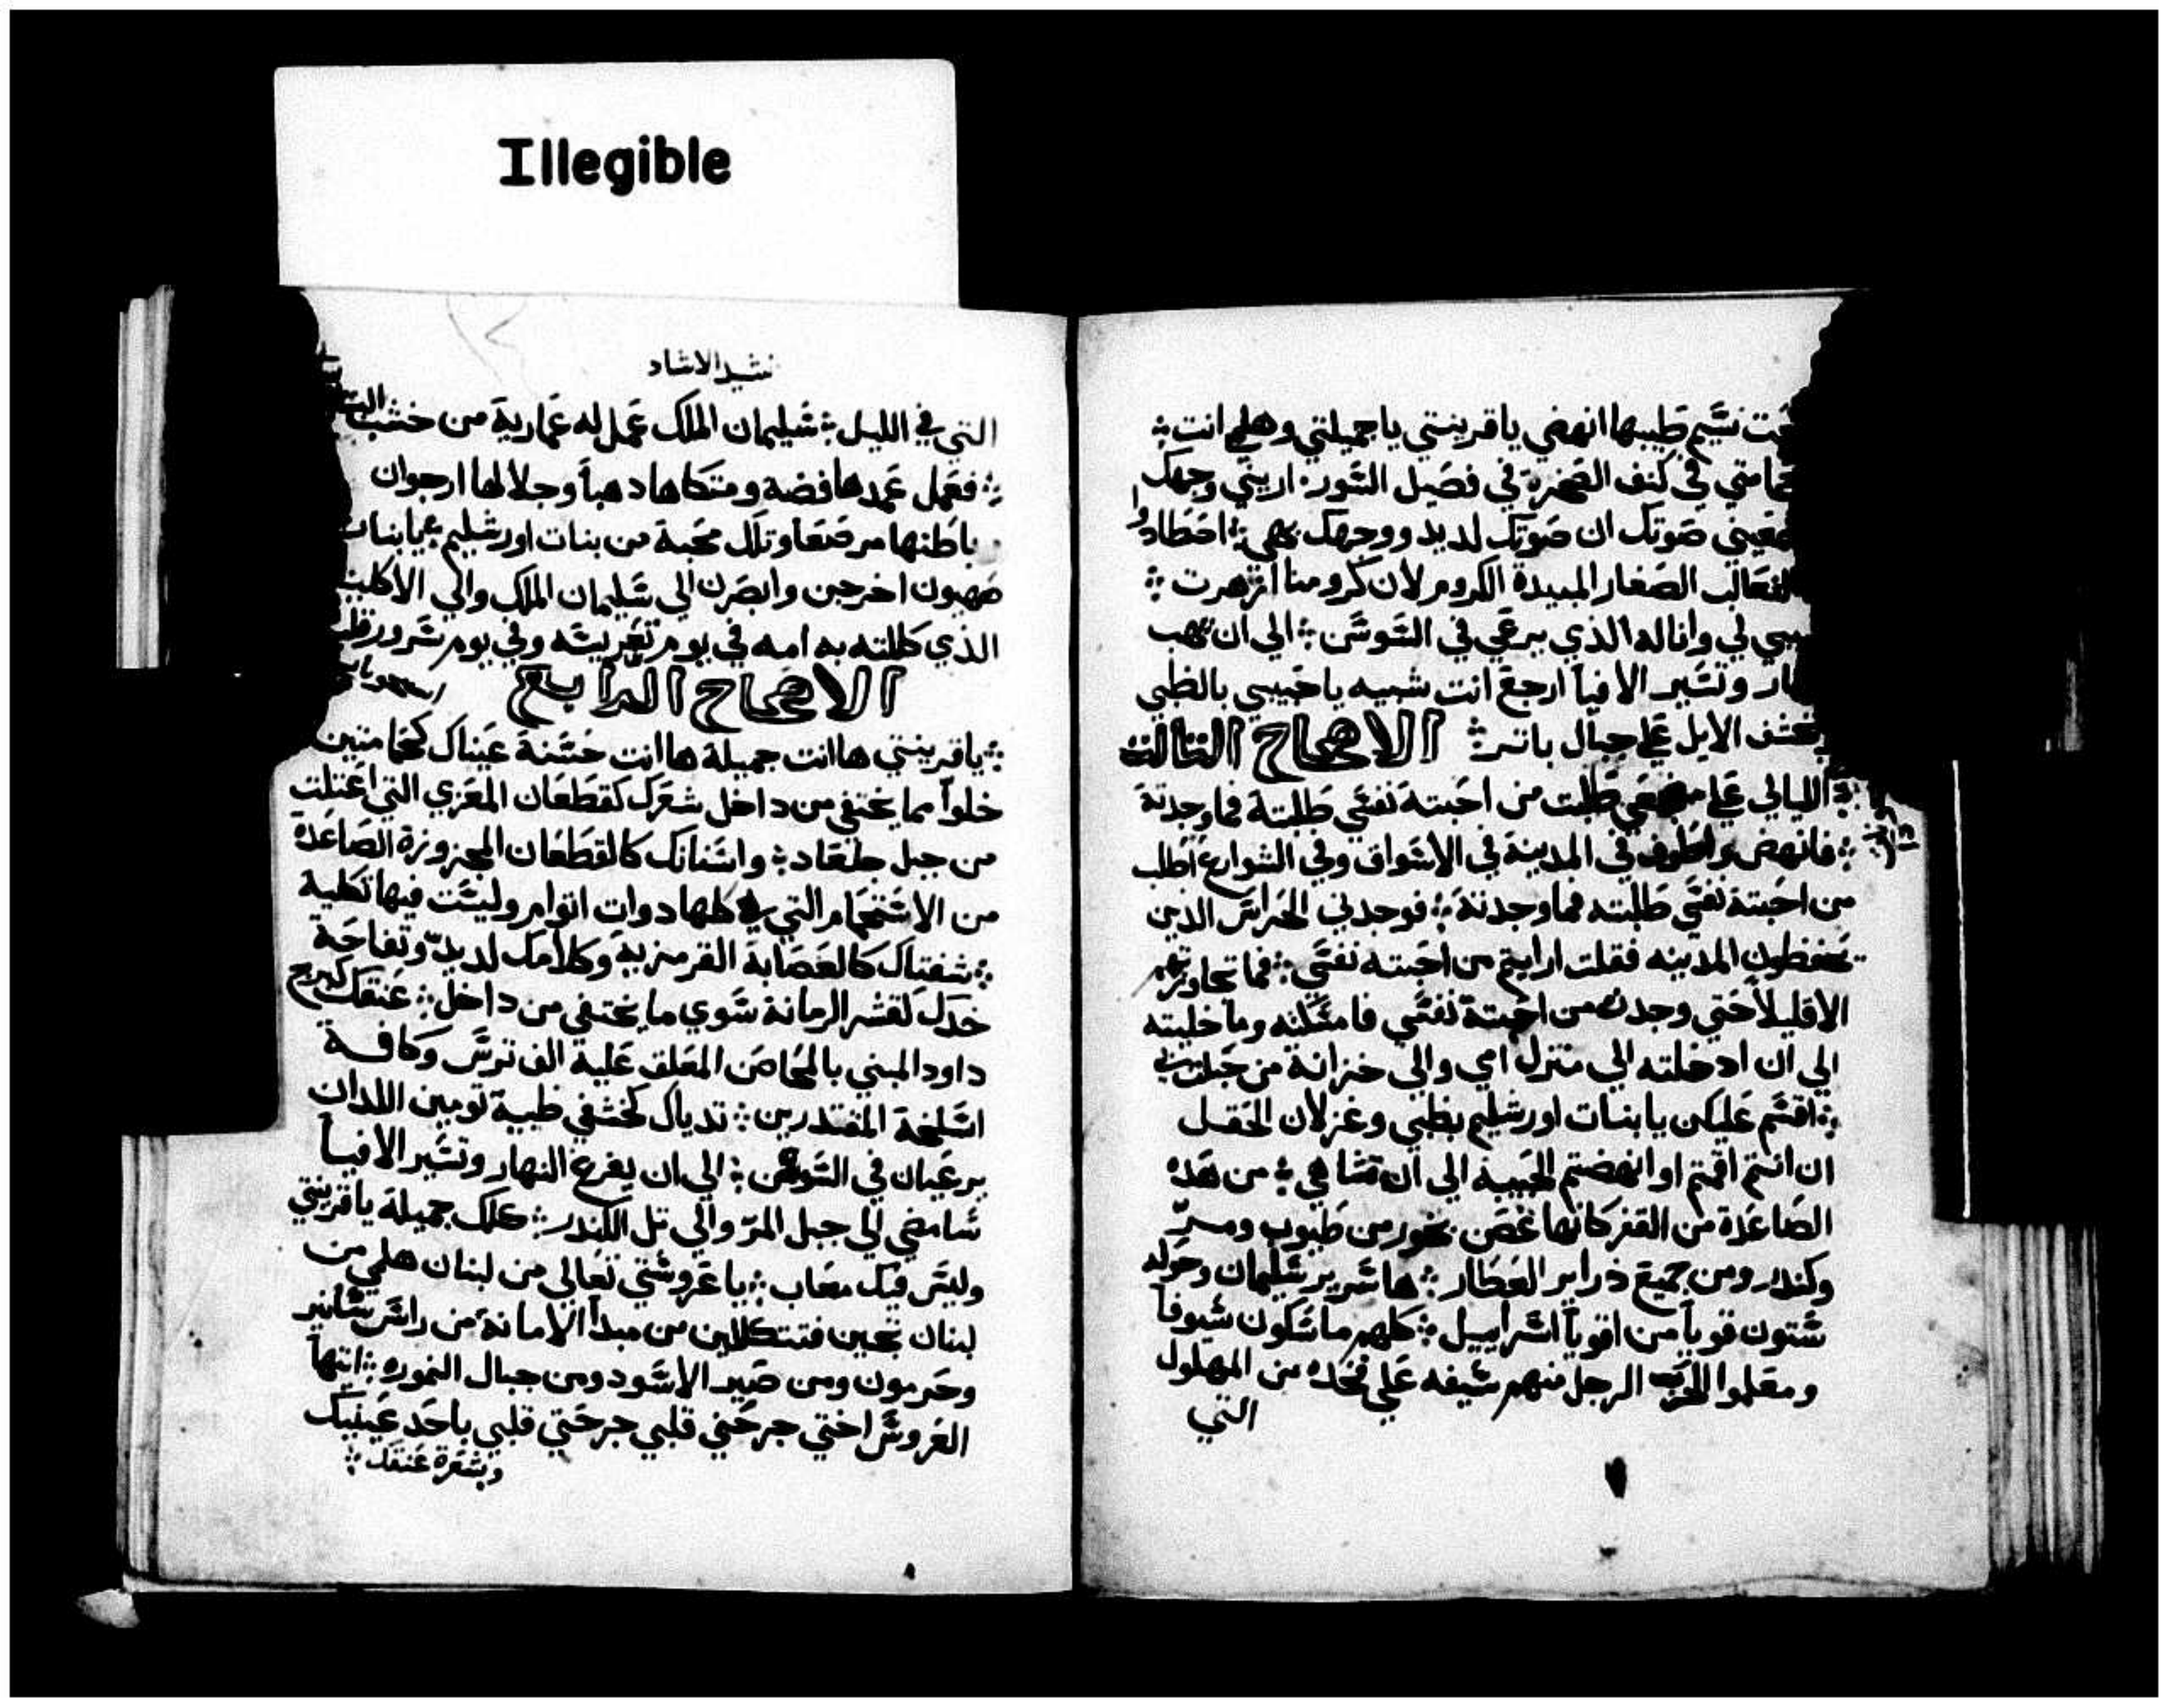 Illegible
نسيم طيبها انهضي ياقرينتي ياجميلتي وهلم انت
في كنف الصخرة في فصيل السور اريني وجهك
صوتك ان صوتك لديد ووجهك بهي احطادوا
الصغار المبيدة الكروم لان كرومنا ازهرت
لي وانا له الذي يرعي في السوسن الي ان يهب
وتسير الافيا ارجع انت شبيه ياحبيبي بالظبي
الايل علي جبال باتر الاصحاح التالت
الليالي علي طلبت من احبته نفسي طلبتة فما وجدتة
فانهض واطوف في المدينة في الاسواق وفي الشوارع اطلب
من احبتة نفسي طلبته فما وجدتة فوجدني الحراس الدين
يحفظون المدينه فقلت ارايتم من احبته نفسي فما تجاوزتهم
الاقليلا حتي وجدت من احبتة نفسي فامسكته وما خليته
الي ان ادخلته الي منزل امي والي خزانة من حبلت بي
اقسم عليكن يابنات اورشليم بظبي وغزلان الحقل
ان انتم اقمتم او انهضتم الحبيبة الي ان تشا هي من هده
الصاعدة من القفر كانها غصن بخور من طيوب ومر
وكندر ومن جميع دراير العطار ها سرير سليمان وحوله
ستون قويا من اقويا اسراييل كلهم ماسكون سيوفا
ومعلموا الحرب الرجل منهم سيفه علي فخده من المهلول
التي
نشيد الانشاد
التي في الليل سليمان الملك عمل له عمارية من خشب
فعمل عمدها فضة ومتكاها دهبا وجلالها ارجوان
باطنها مرصعا وتلك محبة من بنات اورشليم يابنات
صهيون اخرجن وابصرن الي سليمان الملك والي الاكليل
الذي كللته به امه في يوم تعريسه وفي يوم سرور
الاصحاح الرابع
ياقرينتي ها انت جميلة ها انت حسنة عيناك كحمامتين
خلوا مما يختفي من داخل شعرك كقطعان المعزي التي اعتلت
من جبل جلعاد واسنانك كالقطعان المجزوزة الصاعدة
من الاستحمام التي كلها دوات اتوام وليست فيها تكلية
شفتاك كالعصابة القرمزية وكلامك لديد وتفاحة
خدك كقشر الرمانة سوي ما يختفي من داخل عنقك كبرج
داود المبني بالمحاصن المعلق علية الف ترس وكافة
اسلحة المقتدرين تدياك كخشفي ظبية تومين اللدان
يرعيان في السوسن الي ان يفرغ النهار وتسير الافيا
سامضي الي جبل المر والي تل الكندر كلك جميلة ياقرينتي
وليس فيك معاب ياعروستي تعالي من لبنان هلمي من
لبنان تجين فتتكللين من مبدا الامانة من راس سانير
وحرمون ومن صير الاسود ومن جبال النموره ايتها
العروس اختي جرحتي قلبي جرحتي قلبي باحد عينيك
وبشعرة عنقك